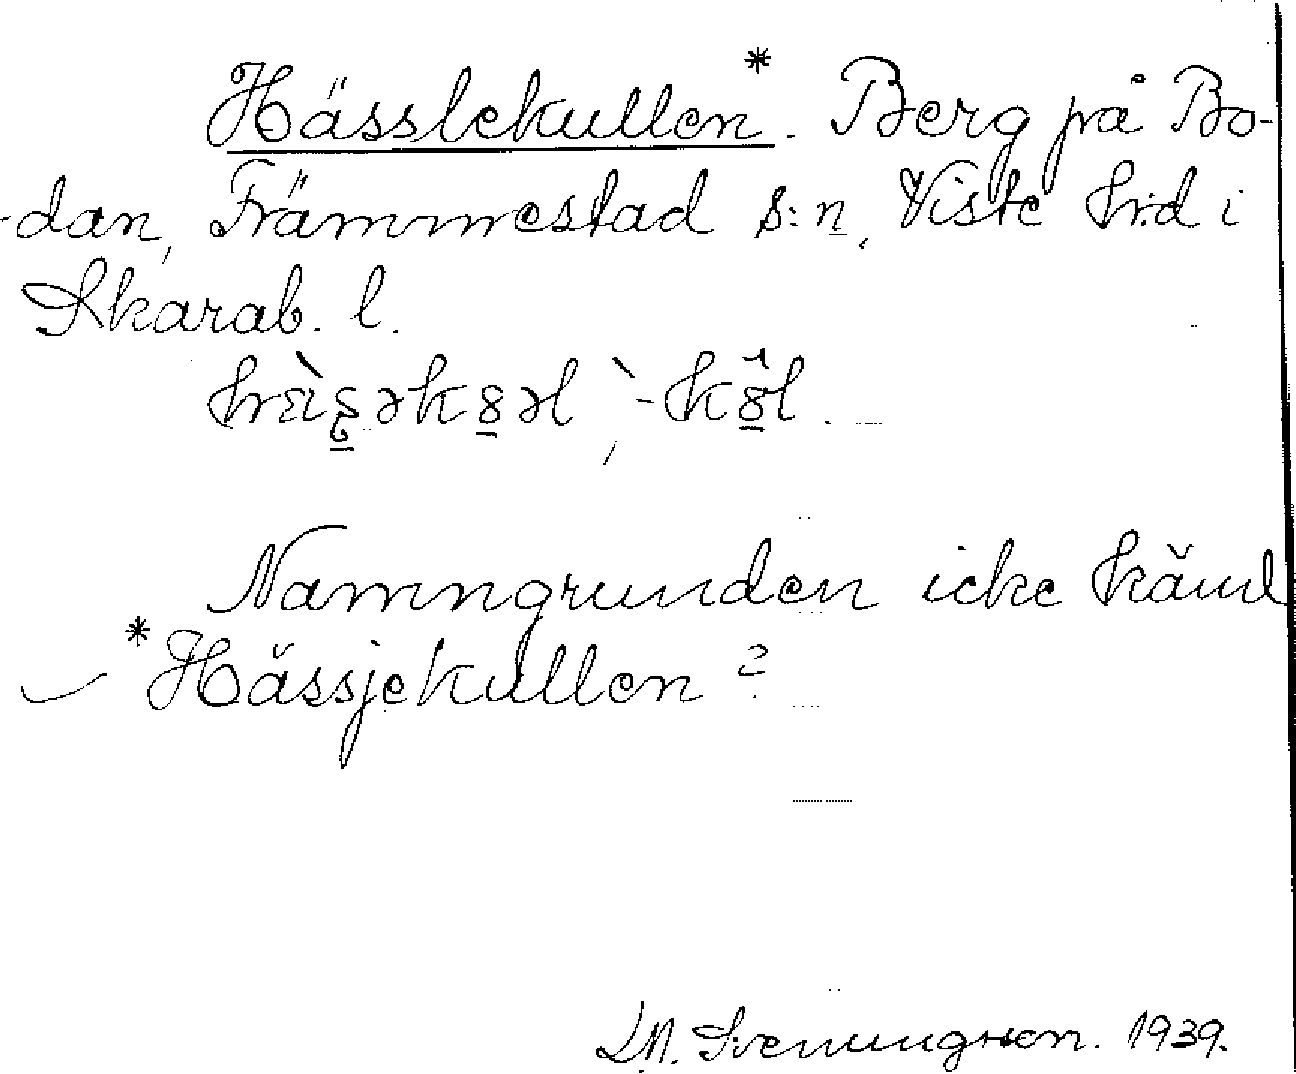 Hässlekullen*. Berg på Bo-
-dan, Främmestad s:n, Viste hrd i
Skarab. l.
Namngrunden icke känd
*Hässjekullen?
Sveningsson. 1939.